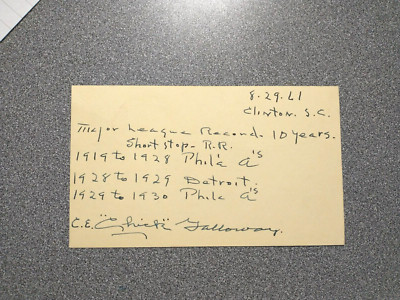 8.29.61
Clinton. S.C.
Major League Record. 10 years.
Short stop - R.R.
1919 to 1928 Phil'a A's
1928 to 1929 Detroit.
1929 to 1930 Phila A's
C.E. "Chick" Galloway.